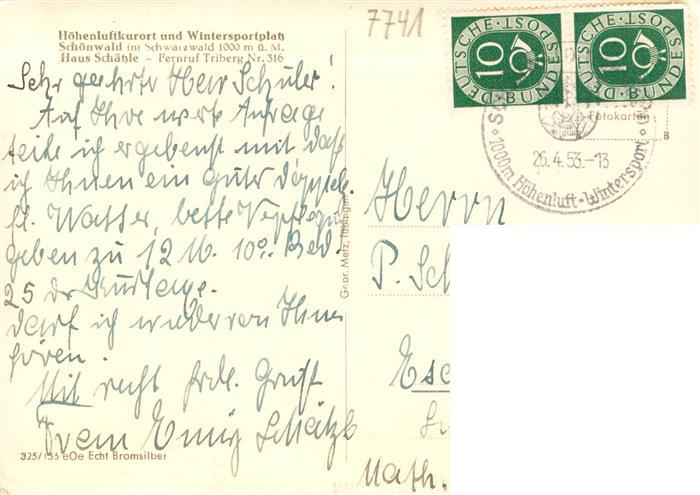 7741
Höhenluftkurort und Wintersportplatz
Schönwald im Schwarzwald 1000 m ü. M.
Haus Schätzle - Fernruf Triberg Nr. 316
Sehr geehrter Herr Schüler!
Auf Ihre werte Anfrage
teile ich ergebenst mit daß
ich Ihnen ein gutes
fl. Wasser, beste Verpflegung
geben zu 12 M. 10% Bed.
25 d Kurtaxe.
Darf ich wieder von Ihnen
hören.
Mit recht frdl. Gruß
Frau Schätzle
325/155 eOe Echt Bromsilber
Gebr. Metz, Tübingen
DEUTSCHE BUNDESPOST
10
DEUTSCHE BUNDESPOST
10
Fotokarten
B
26.4.53.-13
1000m Höhenluft-Wintersport
Herrn
P. Sch
Esc
Math.